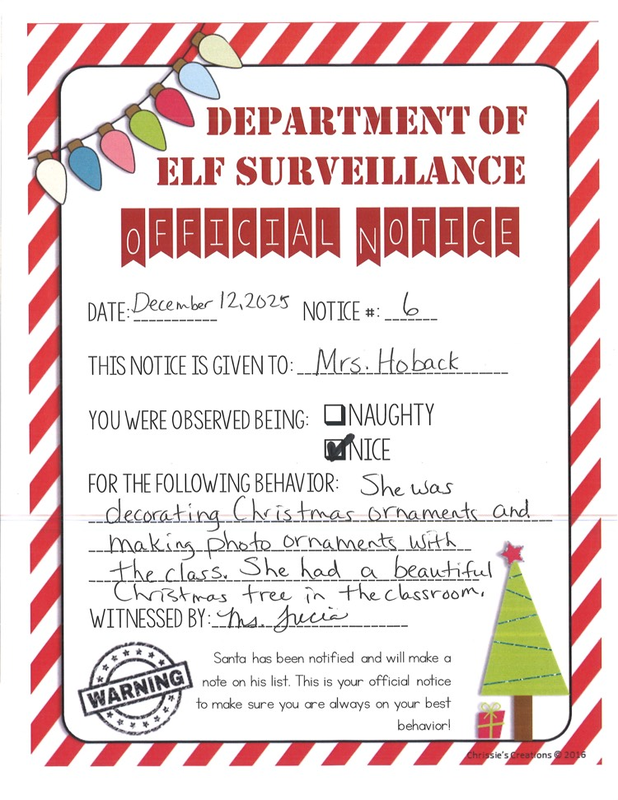 DEPARTMENT OF
ELF SURVEILLANCE
OFFICIAL NOTICE
DATE: December 12, 2025 NOTICE #: 6
THIS NOTICE IS GIVEN TO: Mrs. Hoback
YOU WERE OBSERVED BEING: NAUGHTY
NICE
FOR THE FOLLOWING BEHAVIOR: She was
decorating Christmas ornaments and
making photo ornaments with
the class. She had a beautiful
Christmas tree in the classroom.
WITNESSED BY: Ms. Lucia
WARNING
Santa has been notified and will make a
note on his list. This is your official notice
to make sure you are always on your best
behavior!
Chrissie's Creations © 2016